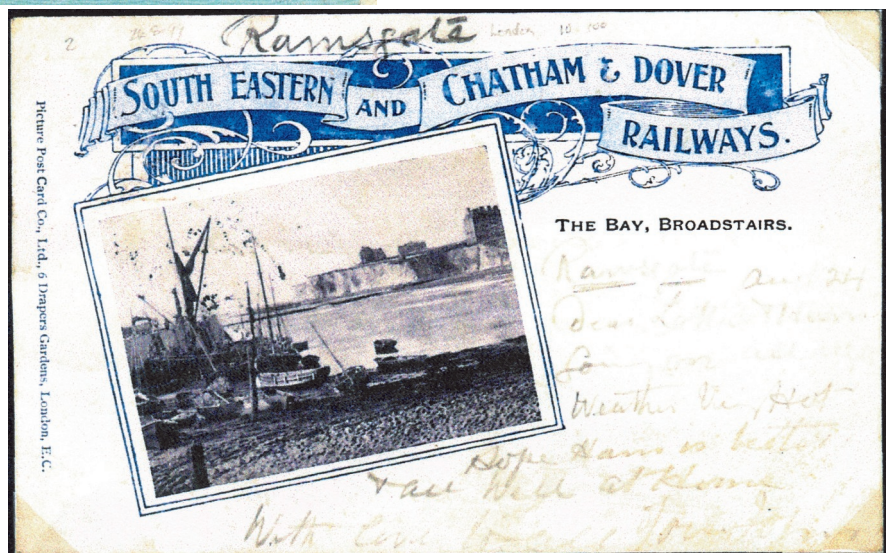 2
Ramsgate London 10 100
SOUTH EASTERN AND CHATHAM & DOVER
RAILWAYS.
Picture Post Card Co., Ltd., 6 Drapers Gardens, London, E.C.
THE BAY, BROADSTAIRS.
Ramsgate Aug 24
Dear
Weather Very Hot
Hope is better
& all Well at Home
With love to all